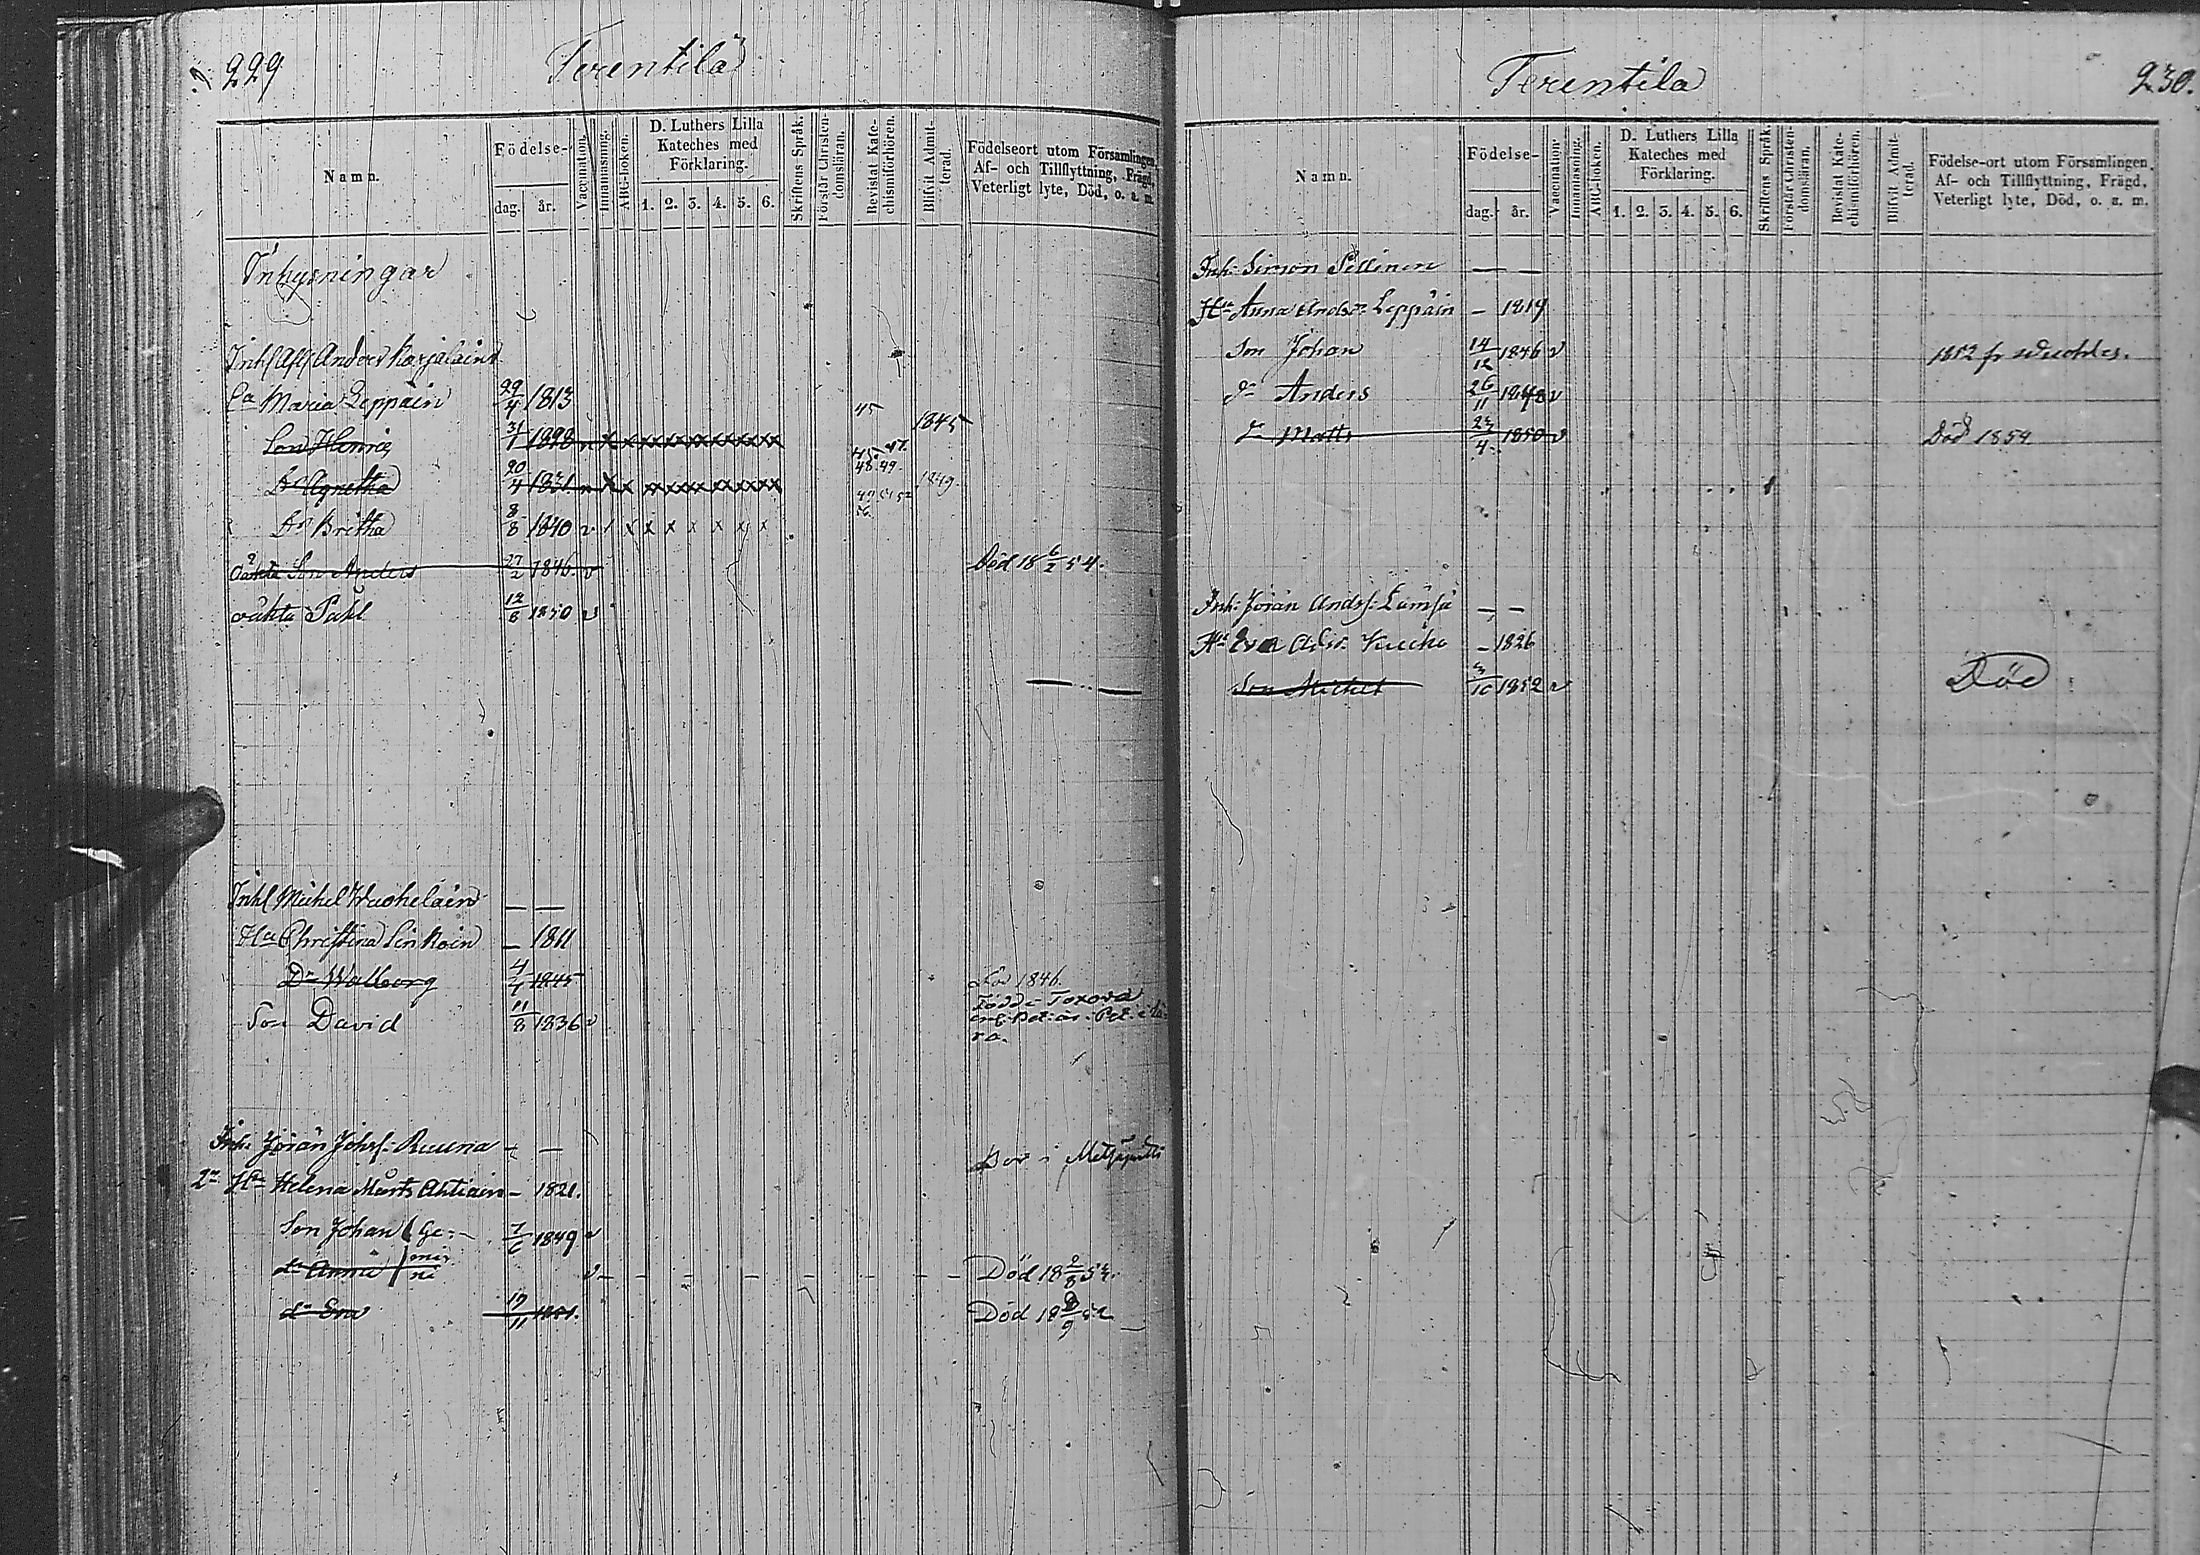 229
Terentilä
Namn.
Födelse-
dag.
år.
Vaccination.
Innanläsning.
ABC-boken.
D. Luthers Lilla
Kateches med
Förklaring.
1. 2. 3. 4. 5. 6.
Skriftens Språk.
Förstår Christen-
domsläran.
Bevistat Kate-
chismiförhören.
Blifvit Admit-
terad.
Födelseort utom Församlingen.
Af- och Tillflyttning, Frägd,
Veterligt lyte, Död, o. a. m.
Inhysningar
Inh Afl Anders Karjalain
Maria Leppäin 29/4 1813 45
Son Henric 31/1 1828 v x x xxxxxxxxxx 45 47. 1845
Dr Agnetha 20/4 1831 v x x xxxxxxxxxx 48.49. 1849
Dr Britha 8/8 1840 v / x x x x x x x
oäkta Son Anders 27/2 1846. v Död 18 6/2 54.
oäkta Påhl 12/8 1850 v
Inh Michel Wuohelain — —
Hu Christina Sinkoin — 1811
Dr Walborg 4/1 1845 Död 1846.
Son David 11/8 1836 v Född i Toxova
Inh: Jöran Johsf: Ruuna — — Bor i Metsäpirtti
2n Hu Helena Mårts Ahtiain — 1821.
Son Johan Ge- 7/6 1849 v
dr Anna mi ni v — — — — — — — — Död 18 2/8 52.
dr Eva 19/11 1851. Död 18 2/9 52
Terentilä
230.
Namn.
Födelse-
dag.
år.
Vaccination.
Innanläsning.
ABC-boken.
D. Luthers Lilla
Kateches med
Förklaring.
1. 2. 3. 4. 5. 6.
Skriftens Språk.
Förstår Christen-
domsläran.
Bevistat Kate-
chismiförhören.
Blifvit Admit-
terad.
Födelse-ort utom Församlingen.
Af- och Tillflyttning, Frägd,
Veterligt lyte, Död, o. a. m.
Inh: Simon Pellinen — —
Hu Anna Andsdr Leppäin — 1819
Son Johan 14/12 1846 v
dn Anders 26/11 1848 v
dn Matts 23/4 1850 v Död 1854
Inh: Jöran Andsf: Lämsä — —
Hu Eva — 1826
Son Michel 3/10 1852 v Död